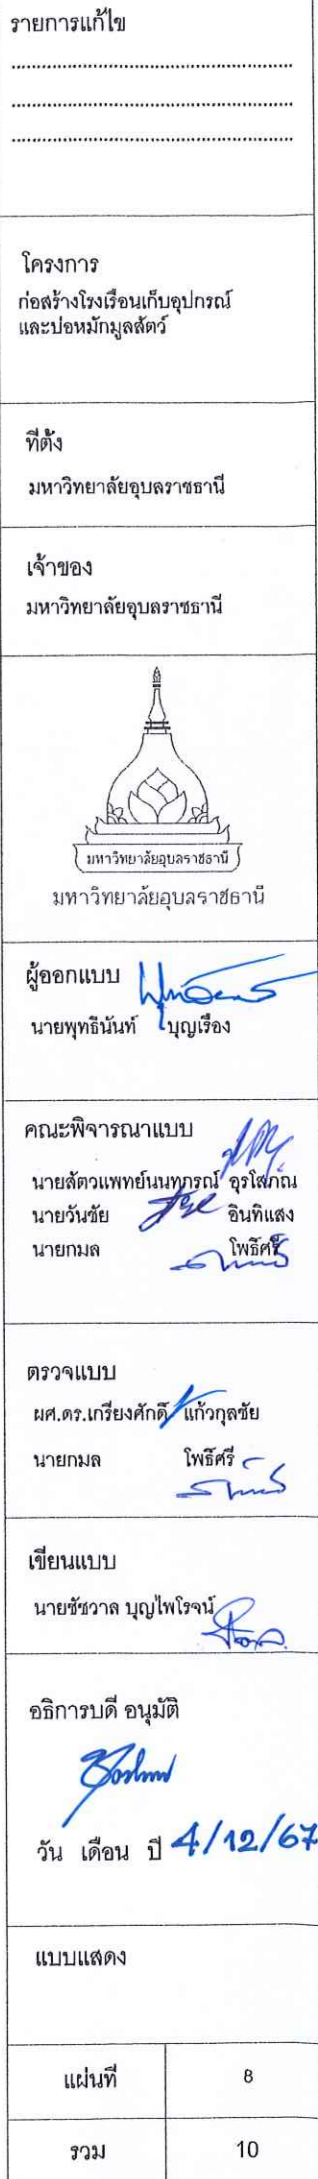 รายการแก้ไข
โครงการ
ก่อสร้างโรงเรือนเก็บอุปกรณ์
และบ่อหมักมูลสัตว์
ที่ตั้ง
มหาวิทยาลัยอุบลราชธานี
เจ้าของ
มหาวิทยาลัยอุบลราชธานี
มหาวิทยาลัยอุบลราชธานี
มหาวิทยาลัยอุบลราชธานี
ผู้ออกแบบ
นายพุทธินันท์ บุญเรือง
คณะพิจารณาแบบ
นายสัตวแพทย์นนทกรณ์ อุรโสภณ
นายวันชัย อินทิแสง
นายกมล โพธิ์ศรี
ตรวจแบบ
ผศ.ดร.เกรียงศักดิ์ แก้วกุลชัย
นายกมล โพธิ์ศรี
เขียนแบบ
นายชัชวาล บุญไพโรจน์
อธิการบดี อนุมัติ
วัน เดือน ปี 4/12/67
แบบแสดง
แผ่นที่ 8
รวม 10